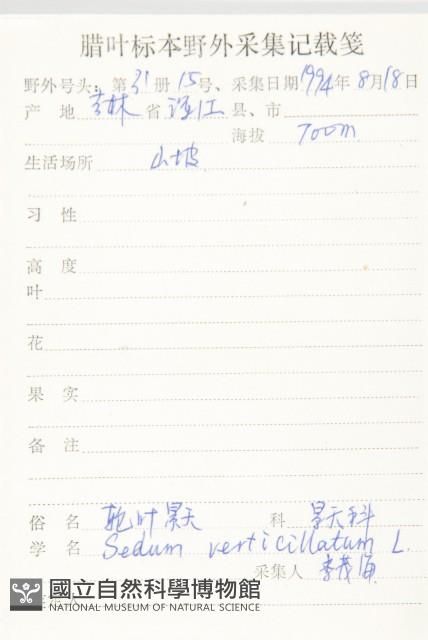 腊叶标本野外采集记载笺
野外号头:第31册15号、采集日期1994年8月18日
产 地 吉林省 浑江 县、市
海拔 700m
生活场所 山坡
习 性
高 度
叶
花
果 实
备 注
俗 名 轮叶景天 科 景天科
学 名 Sedum verticillatum L.
采集人 李茂海
國立自然科學博物館
NATIONAL MUSEUM OF NATURAL SCIENCE